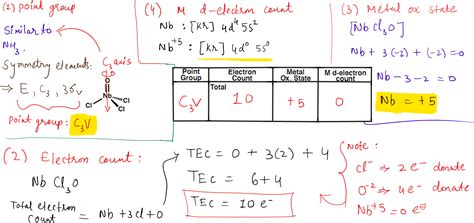 (1) point group
Similar to
NH3
Symmetry elements:
→ E, C3, 3σv
Point group: C3V
C3 axis
O
Nb
Cl
Cl
Cl
(4) M d-electron count
Nb : [Kr] 4d4 5s2
Nb+5 : [Kr] 4d0 5s0
(3) Metal ox state
[Nb Cl3O]
Nb + 3(-1) + (-2) = 0
Nb - 3 - 2 = 0
Nb = +5
Point Group
Electron Count
Metal Ox. State
M d-electron count
C3V
Total
10
+5
0
(2) Electron count:
Nb Cl3O
Total electron
Count = Nb + 3Cl + O
TEC = 0 + 3(2) + 4
TEC = 6+4
TEC = 10 e-
Note:
Cl- → 2e- donate
O-2 → 4e- donate
Nb+5 → 0 e-